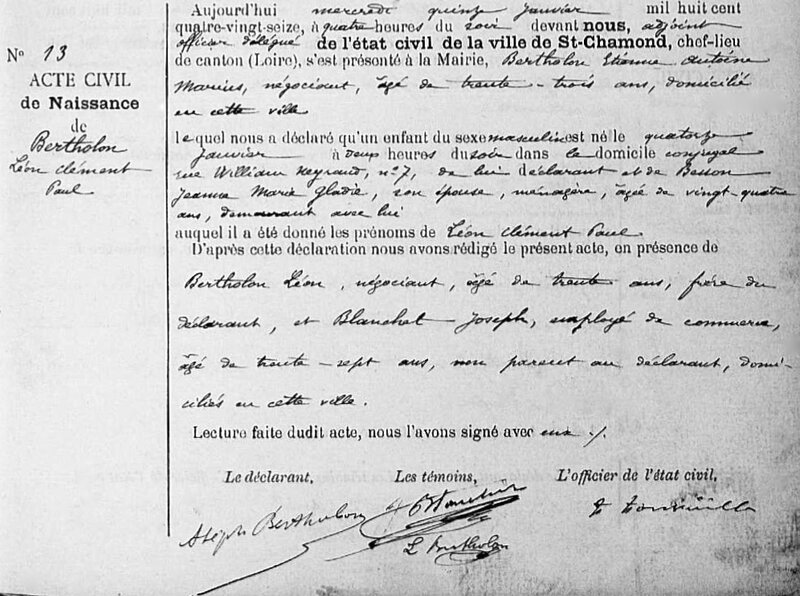 Nº 13
ACTE CIVIL
de Naissance
de
Bertholon
Léon Clément
Paul
Aujourd'hui mercredi quinze janvier mil huit cent
quatre-vingt-seize, à quatre heures du soir devant nous, adjoint
officier délégué de l'état civil de la ville de St-Chamond, chef-lieu
de canton (Loire), s'est présenté à la Mairie, Bertholon Etienne Antoine
Marius, négociant, âgé de trente-trois ans, domicilié
en cette ville
lequel nous a déclaré qu'un enfant du sexe masculin est né le quatorze
janvier à deux heures du soir dans le domicile conjugal
rue William Neyrand, nº 7, de lui déclarant et de Besson
Jeanne Marie Gladie, son épouse, ménagère, âgée de vingt-quatre
ans, demeurant avec lui
auquel il a été donné les prénoms de Léon Clément Paul
D'après cette déclaration nous avons rédigé le présent acte, en présence de
Bertholon Léon, négociant, âgé de trente ans, frère du
déclarant, et Blanchet Joseph, employé de commerce,
âgé de trente-sept ans, non parent au déclarant, domi-
ciliés en cette ville.
Lecture faite dudit acte, nous l'avons signé avec eux ./.
Le déclarant, Les témoins, L'officier de l'état civil,
Bertholon
L Bertholon